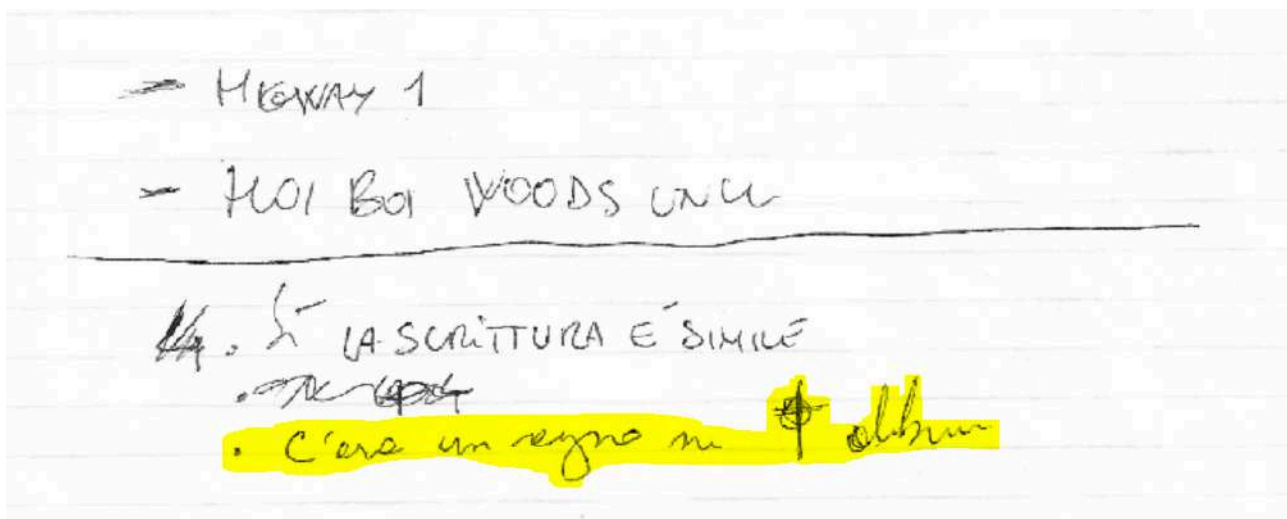 - HIGWAY 1
- HOI BOI WOODS UNCL
. Sì LA SCRITTURA E' SIMILE
. C'era un segno su album